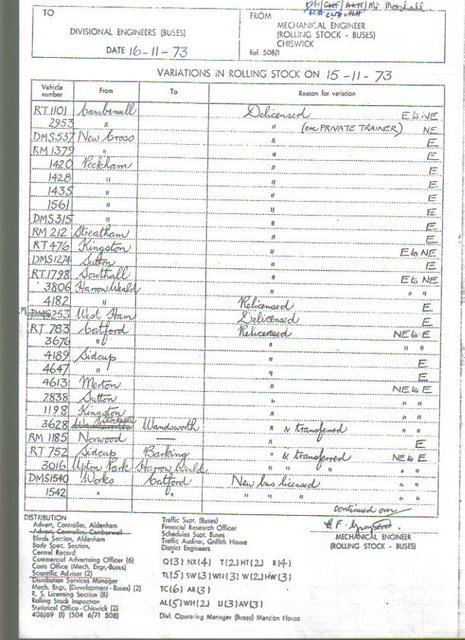 Mr Marshall
TO
DIVISIONAL ENGINEERS (BUSES)
DATE 16-11-73
FROM
MECHANICAL ENGINEER
(ROLLING STOCK - BUSES)
CHISWICK
Ref. 508/1
VARIATIONS IN ROLLING STOCK ON 15-11-73
Vehicle number From To Reason for variation
RT 1101 Camberwell Delicensed E to NE
2953 " " (exc PRIVATE TRAINER) NE
DMS 537 New Cross " E
RM 1379 " " E
1420 Peckham " E
1428 " " E
1435 " " E
1561 " " E
DMS 315 " " E
RM 212 Streatham " E
RT 476 Kingston " E to NE
DMS 1574 Sutton " E
RT 1798 Southall " E to NE
3806 Harrow Weald " " "
4182 " Relicensed E
253 West Ham Delicensed E
RT 783 Catford Relicensed NE to E
3676 " " " "
4189 Sidcup " E
4647 " " E
4613 Merton " NE to E
2838 Sutton " " "
1198 Kingston " " "
3628 Wandsworth " & transferred " "
RM 1185 Norwood — " E
RT 752 Sidcup Barking " & transferred NE to E
3016 Upton Park Harrow Weald " " " " "
DMS 1540 Works Catford New bus licensed E
1542 " " " " " "
continued over
MECHANICAL ENGINEER
(ROLLING STOCK - BUSES)
DISTRIBUTION
Advert. Controller, Aldenham
Advert. Controller, Camberwell
Blinds Section, Aldenham
Body Spec. Section,
Central Record
Commercial Advertising Officer (6)
Costs Office (Mech. Engr.-Buses)
Scientific Adviser (2)
Distribution Services Manager
Mech. Engr. (Development - Buses) (2)
R. S. Licensing Section (8)
Rolling Stock Inspection
Statistical Office - Chiswick (2)
408/69 (I) (504 6/71 508)
Traffic Supt. (Buses)
Financial Research Officer
Schedules Supt. Buses
Traffic Auditor, Griffith House
District Engineers
Q(3) NX(4) T(2) HT(2) R(4)
TL(5) SW(3) WN(3) W(2) HW(3)
TC(6) AR(3)
AL(5) WH(2) U(3) AV(3)
Divl. Operating Manager (Buses) Mansion House